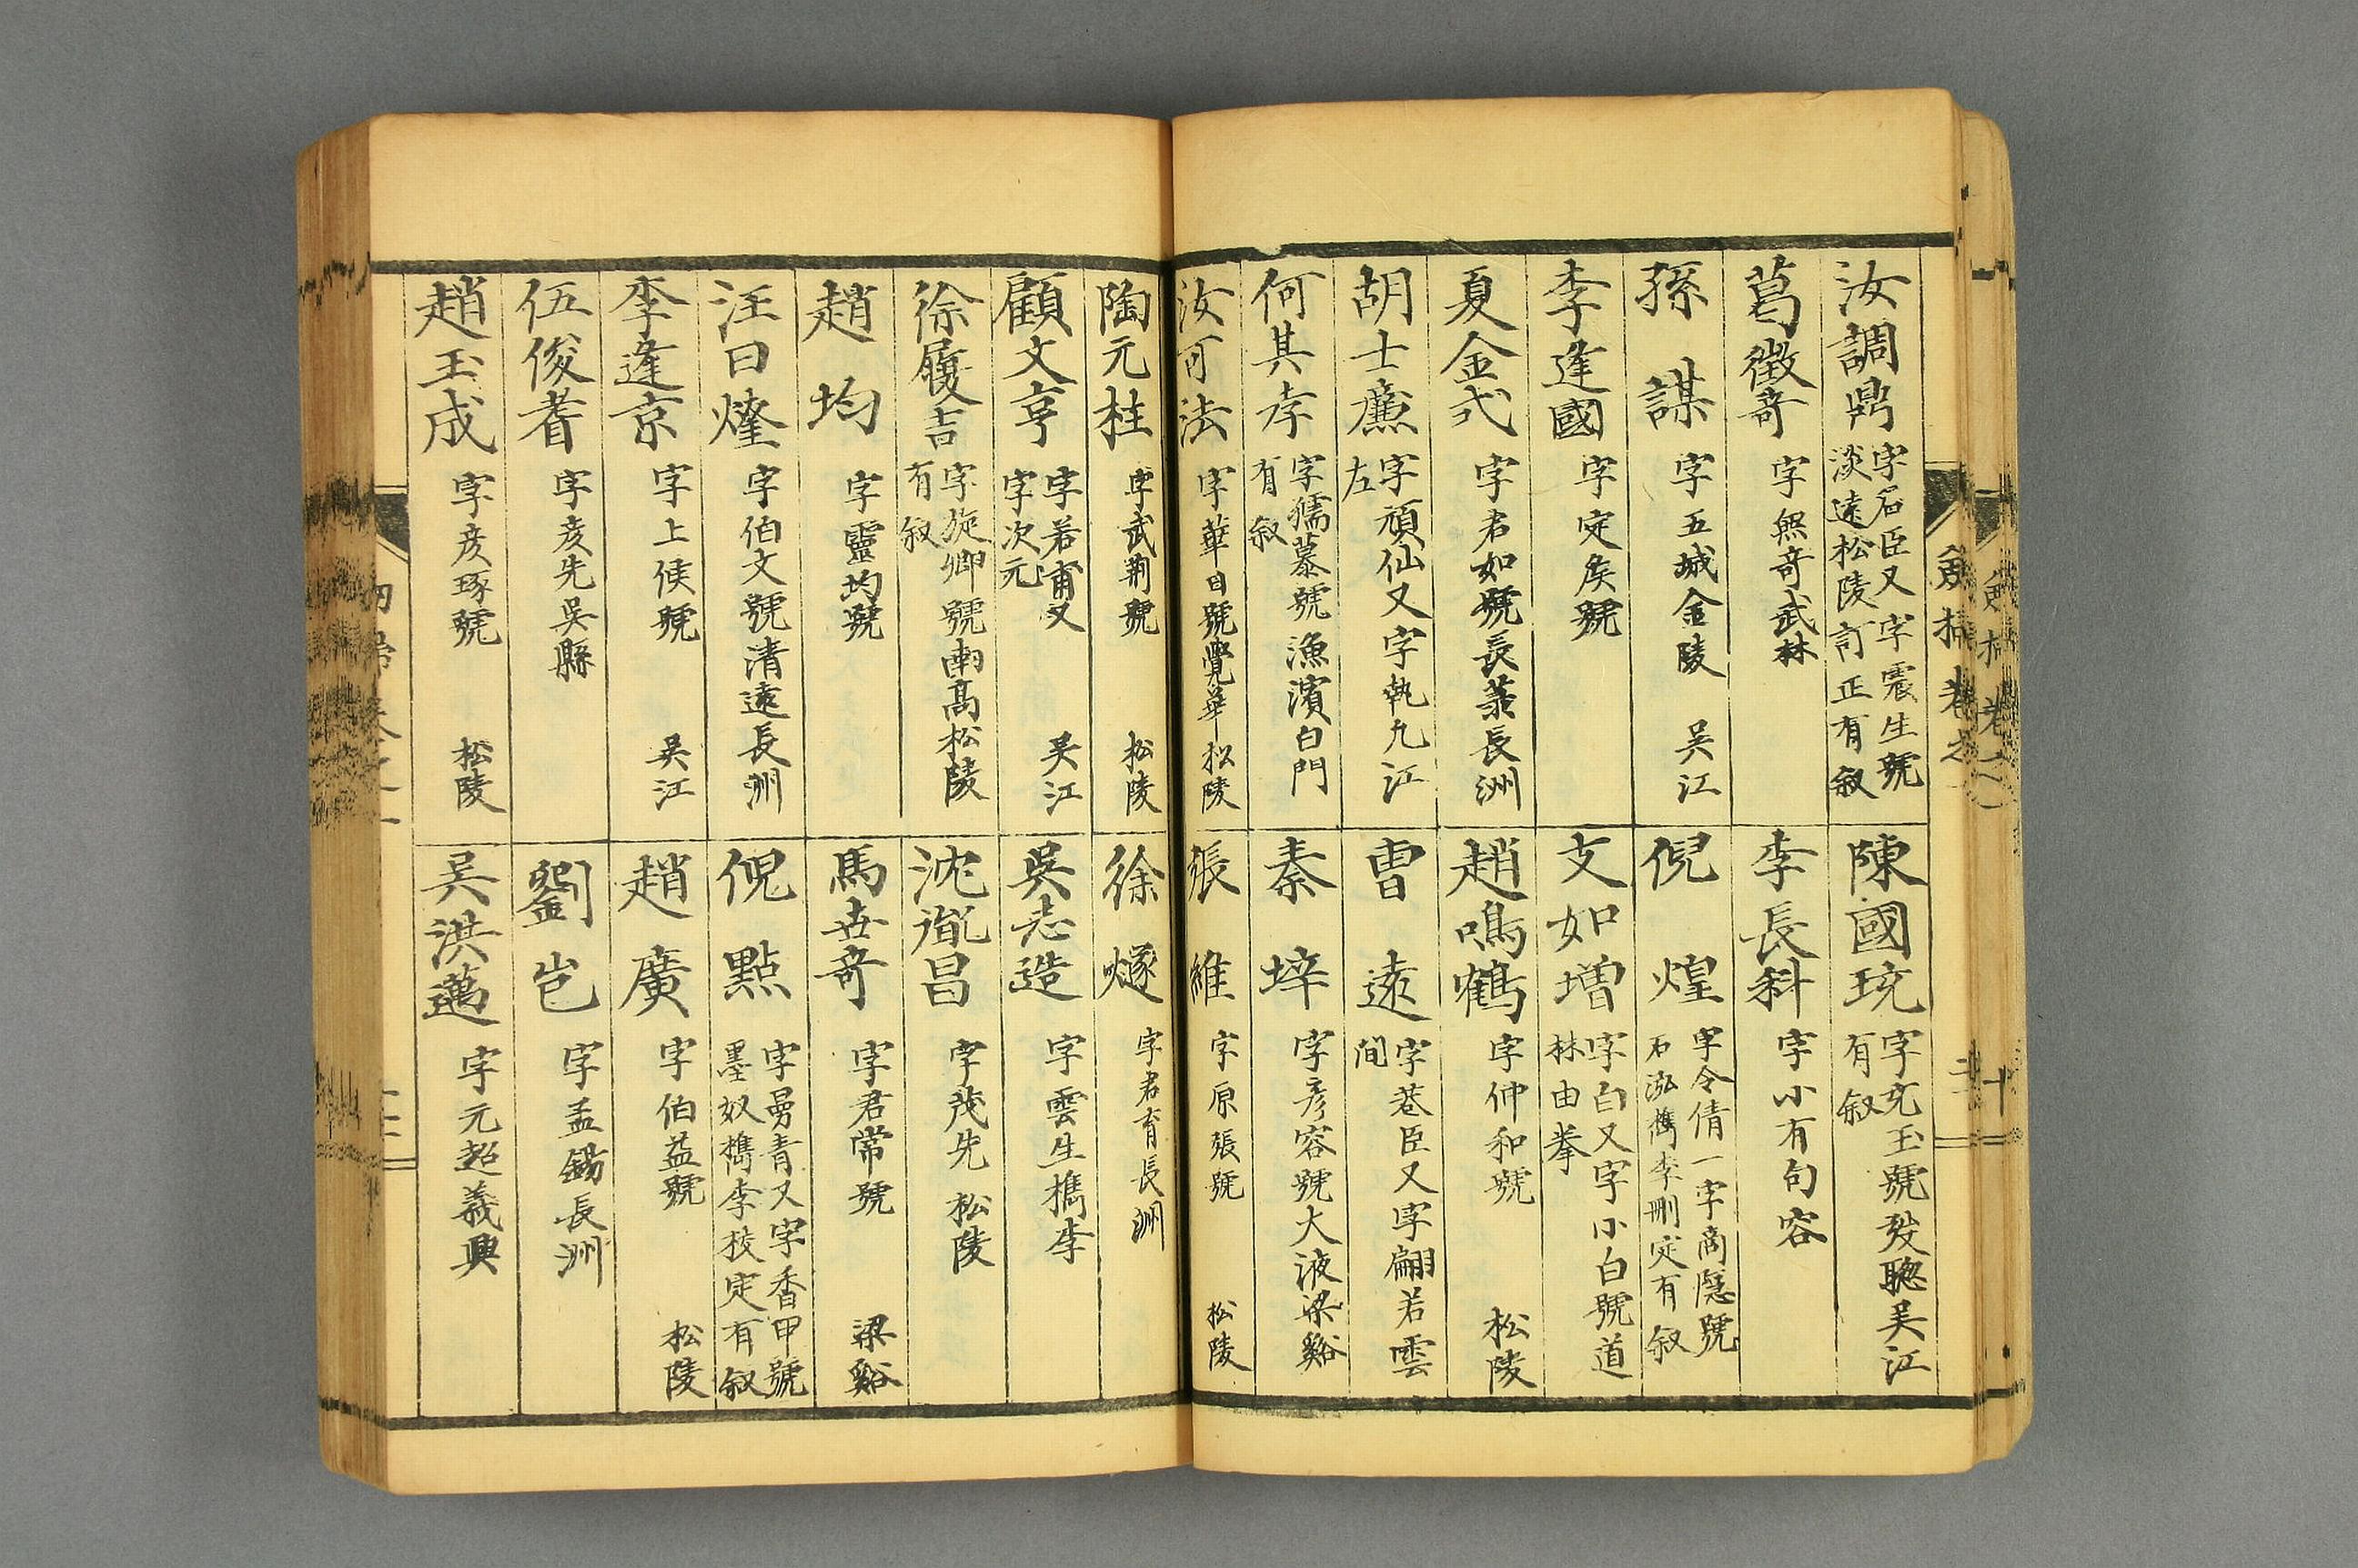 汝調鼎 字若臣又字震生號
淡遠松陵訂正有叙
葛徵奇 字無奇武林
孫謀 字五城金陵 吴江
李逢國 字定矦號
夏金弌 字君如號長蒹長洲
胡士廉 字頑仙又字執九江
左
何其孝 字孺慕號漁濱白門
有叙
汝可法 字華日號覺華松陵
陳國琓 字玉號發聰吴江
有叙
李長科 字小有句容
倪煌 字令倩一字商隱號
石泓檇李刪定有叙
支如增 字白又字小白號道
林由拳
趙鳴鶴 字仲和號 松陵
曹遠 字巷臣又字翩若雲
間
秦埣 字彦容號大液梁谿
張維 字原張號 松陵
陶元柱 字武荊號 松陵
顧文亨 字若甫又 吴江
字次元
徐履吉 字旋卿號南髙松陵
有叙
趙均 字靈均號
汪曰燵 字伯文號清遠長洲
李逢京 字上候號 吴江
伍俊耆 字彦先吳縣
趙玉成 字彦琢號 松陵
徐燧 字君育長洲
吳志造 字雲生檇李
沈胤昌 字茂先 松陵
馬世奇 字君常號 梁谿
倪點 字曼青又字香甲號
墨奴檇李校定有叙
趙廣 字伯益號 松陵
劉岜 字孟錫長洲
吴洪邁 字元超義興